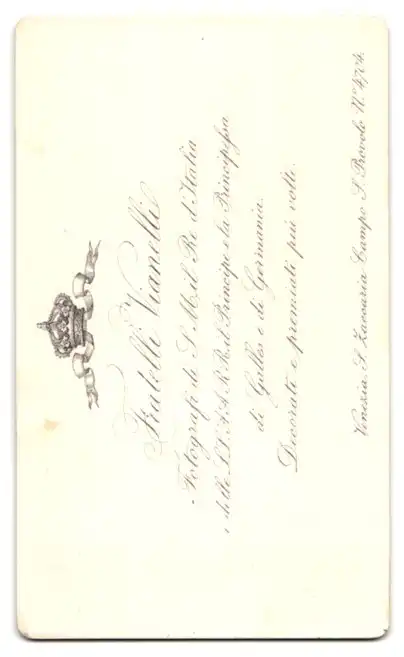 Fratelli Vianelli
Fotografi di S. M. il Re d'Italia
e delle LL. AA. RR. il Principe e la Principessa
di Galles e di Germania.
Decorati e premiati più volte.
Venezia S. Zaccaria Campo S. Provolo N.º 4704.